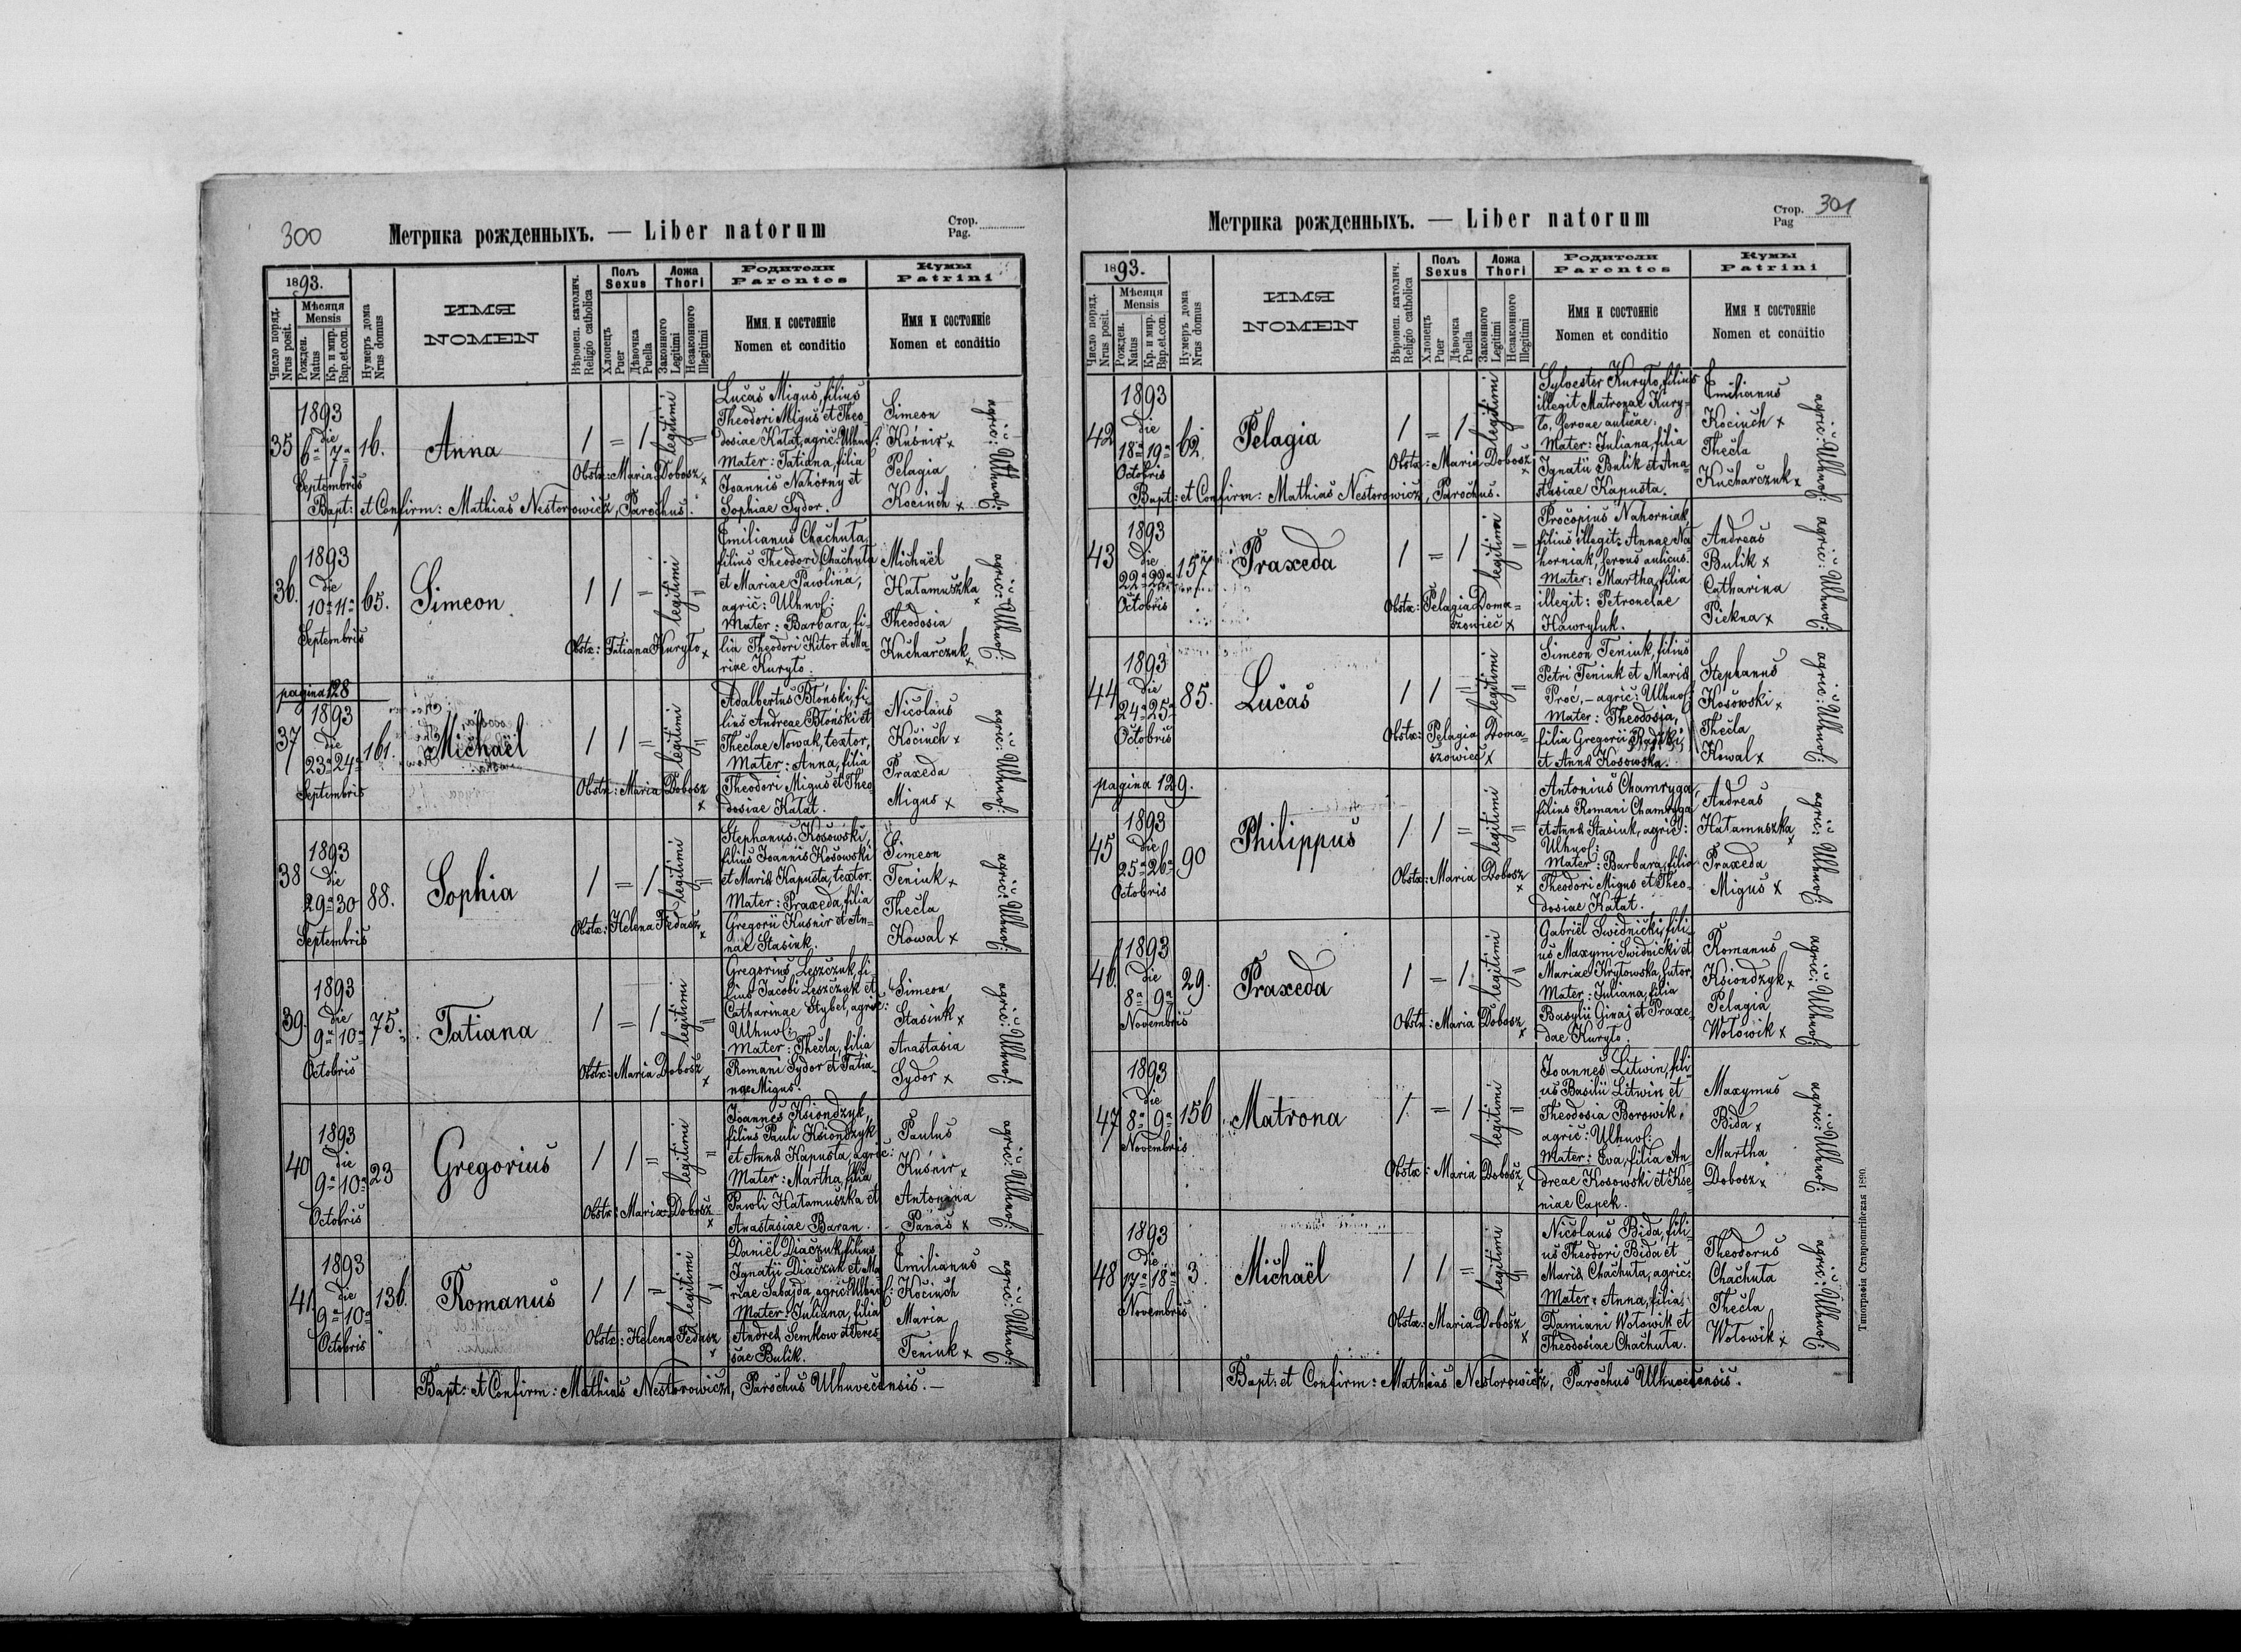 300
Метрика рожденныхъ. — Liber natorum
Стор.
Pag.
1893.
Число поряд.
Nrus posit.
Мѣсяця
Mensis
Рожден.
Natus
Кр. и мир.
Bap.et.con.
Нумеръ дома
Nrus domus
ИМЯ
NOMEN
Вѣроисп. католич.
Religio catholica
Полъ
Sexus
Хлопецъ
Puer
Дѣвочка
Puella
Ложа
Thori
Законного
Legitimi
Незаконного
Illegitimi
Родители
Parentes
Имя и состояніе
Nomen et conditio
Кумы
Patrini
Имя и состояніе
Nomen et conditio
35
1893
die
6ª 7ª
Septembris
16.
Anna
1 = 1 legitimi =
Obstx: Maria Dobosz x
Lucas Migus, filius
Theodori Migus et Theo-
dosiae Kałat, agric: Uhnov:
Mater: Tatiana, filia
Joannis Nahorny et
Sophiae Sydor.
Simeon
Kuśnir x
Pelagia
Kociuch x
agric: Uhnov:
Bapt: et Confirm: Mathias Nestorowicz, Parochus.
36.
1893
die
10ª 11ª
Septembris
65.
Simeon
1 1 = legitimi =
Obstx: Tatiana Kuryło x
Emilianus Chachuta,
filius Theodori Chachuta
et Mariae Pawlina,
agric: Uhnov:
Mater: Barbara, fi-
lia Theodori Kitor et Ma-
riae Kuryło.
Michaël
Hatamuszka x
Theodosia
Kucharczuk x
agric: Uhnov:
pagina 128
37
1893
die
23ª 24ª
Septembris
161.
Michaël
1 1 = legitimi =
Obstx: Maria Dobosz x
Adalbertus Błoński, fi-
lius Andreae Błoński et
Theclae Nowak, textor,
Mater: Anna, filia
Theodori Migus et Theo-
dosiae Kałat.
Nicolaus
Kociuch x
Praxeda
Migus x
agric: Uhnov:
38
1893
die
29ª 30
Septembris
88.
Sophia
1 = 1 legitimi =
Obstx: Helena Fedasz x
Stephanus Kosowski,
filius Joannis Kosowski
et Mariä Kapusta, textor.
Mater: Praxeda, filia
Gregorii Kuśnir et An-
nae Stasiuk.
Simeon
Teniuk x
Thecla
Kowal x
agric: Uhnov:
39.
1893
die
9ª 10ª
Octobris
75.
Tatiana
1 = 1 legitimi =
Obstx: Maria Dobosz x
Gregorius Leszczuk, fi-
lius Jacobi Leszczuk et
Catharinae Stybel, agric:
Uhnov:
Mater: Thecla, filia
Romani Sydor et Tatia-
nae Migus.
Simeon
Stasiuk x
Anastasia
Sydor x
agric: Uhnov:
40
1893
die
9ª 10ª
Octobris
23
Gregorius
1 1 = legitimi =
Obstx: Maria Dobosz x
Joannes Ksiondzyk,
filius Pauli Ksiondzyk
et Annä Kapusta, agric:
Mater: Martha, filia
Pawli Hatamuszka et
Anastasiae Baran.
Paulus
Kuśnir x
Antonina
Panas x
agric: Uhnov:
41
1893
die
9ª 10ª
Octobris
136.
Romanus
1 1 = legitimi =
Obstx: Helena Fedasz x
Daniël Diaczuk, filius
Ignatii Diaczuk et Ma
riae Sabajda, agric: Uhnov:
Mater: Juliana, filia
Andreä Semkow et Teres
sae Bulik.
Emilianus
Kociuch
Maria
Teniuk x
agric: Uhnov:
Bapt: et Confirm: Mathias Nestorowicz, Parochus Ulhuvecensis. —
Метрика рожденныхъ. — Liber natorum
Стор.
Pag
301
1893.
Число поряд.
Nrus posit.
Мѣсяця
Mensis
Рожден.
Natus
Кр. и мир.
Bap.et.con.
Нумеръ дома
Nrus domus
ИМЯ
NOMEN
Вѣроисп. католич.
Religio catholica
Полъ
Sexus
Хлопецъ
Puer
Дѣвочка
Puella
Ложа
Thori
Законного
Legitimi
Незаконного
Illegitimi
Родители
Parentes
Имя и состояніе
Nomen et conditio
Кумы
Patrini
Имя и состояніе
Nomen et conditio
42
1893
die
18ª 19ª
Octobris
62.
Pelagia
1 = 1 legitimi =
Obstx: Maria Dobosz x
Sylvester Kuryło, filius
illegit Matronae Kury-
ło, servae aulicae.
Mater: Juliana, filia
Ignatii Bulik et Ana-
stasiae Kapusta.
Emilianus
Kociuch x
Thecla
Kucharczuk x
agric: Uhnov:
Bapt: et Confirm: Mathias Nestorowicz, Parochus.
43
1893
die
22ª 22ª
Octobris
157
Praxeda
1 = 1 legitimi =
Obstx: Pelagia Doma-
szowiec x
Procopius Nahorniak,
filius illegit: Annae Na-
horniak, servus aulicus.
Mater: Martha, filia
illegit: Petronelae
Hawryluk.
Andreas
Bulik x
Catharina
Piekna x
agric: Uhnov:
44
1893
die
24ª 25ª
Octobris
85.
Lucas
1 1 = legitimi =
Obstx: Pelagia Doma-
szowiec x
Simeon Teniuk, filius
Petri Teniuk et Mariä
Proć, – agric: Uhnov:
Mater: Theodosia,
filia Gregorii Radzki
et Annä Kosowska.
Stephanus
Kosowski x
Thecla
Kowal x
agric: Uhnov:
pagina 129.
45
1893
die
25ª 26ª
Octobris
90
Philippus
1 1 = legitimi =
Obstx: Maria Dobosz x
Antonius Chamryga,
filius Romani Chamryga
et Annä Stasiuk, agric:
Uhnov:
Mater: Barbara, filia
Theodori Migus et Theo-
dosiae Kałat.
Andreas
Hatamuszka x
Praxeda
Migus x
agric: Uhnov:
46.
1893
die
8ª 9ª
Novembris
29.
Praxeda
1 = 1 legitimi =
Obstx: Maria Dobosz x
Gabriël Swidnicki, fili-
us Maxymi Swidnicki et
Mariae Krytowska, sutor,
Mater: Juliana, filia
Basylii Ginaj et Praxe-
dae Kuryło.
Romanus
Ksiondzyk x
Pelagia
Wołowik x
agric: Uhnov:
47
1893
die
8ª 9ª
Novembris
156
Matrona
1. = 1 legitimi =
Obstx: Maria Dobosz x
Joannes Litwin, fili-
us Basilii Litwin et
Theodosia Borowik,
agric: Uhnov:
Mater: Eva, filia An
dreae Kosowski et Kse-
niae Capek.
Maxymus
Bida x
Martha
Dobosz x
agric: Uhnov:
48
1893
die
17ª 18ª
Novembris
3.
Michaël
1 1 = legitimi =
Obstx: Maria Dobosz x
Nicolaus Bida, fili-
us Theodori Bida et
Mariä Chachuta, agric:
Mater: Anna, filia
Damiani Wołowik et
Theodosiae Chachuta.
Theodorus
Chachuta
Thecla
Wołowik x
agric: Uhnov:
Bapt: et Confirm: Mathias Nestorowicz, Parochus Ulhuvecensis.
Типографія Ставропигійская 1890.